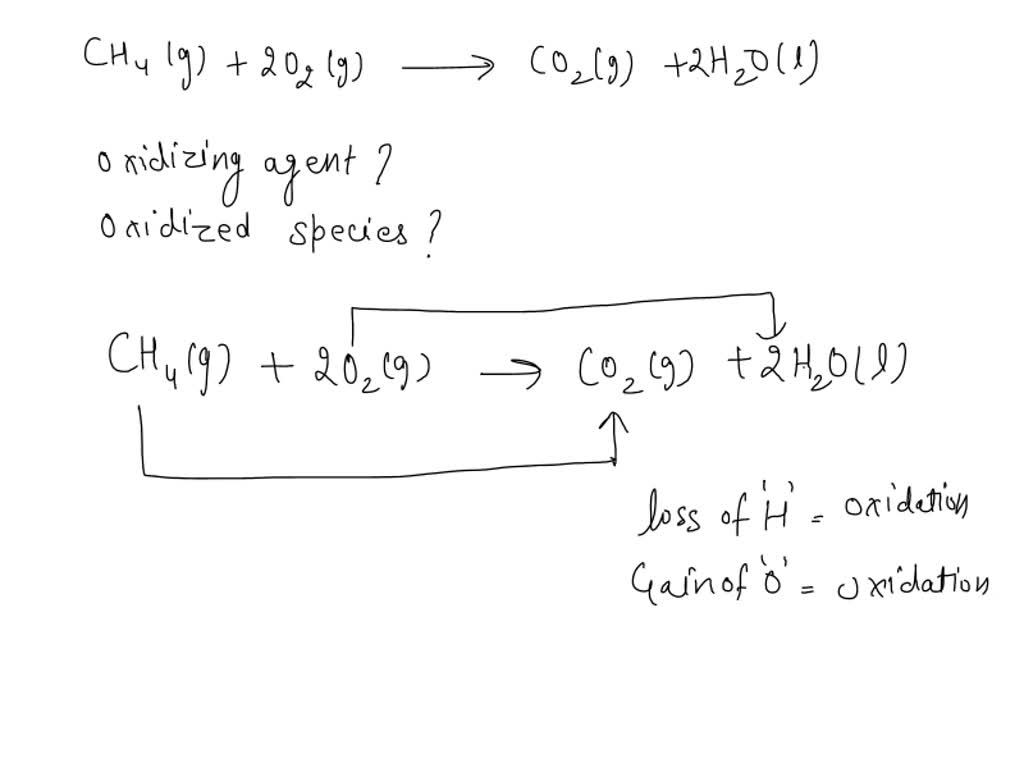 CH₄ (g) + 2O₂ (g) → CO₂(g) +2H₂O(l)
oxidizing agent ?
Oxidized species ?
CH₄(g) + 2O₂(g) → CO₂(g) +2H₂O(l)
loss of 'H' = oxidation
Gain of 'O' = oxidation